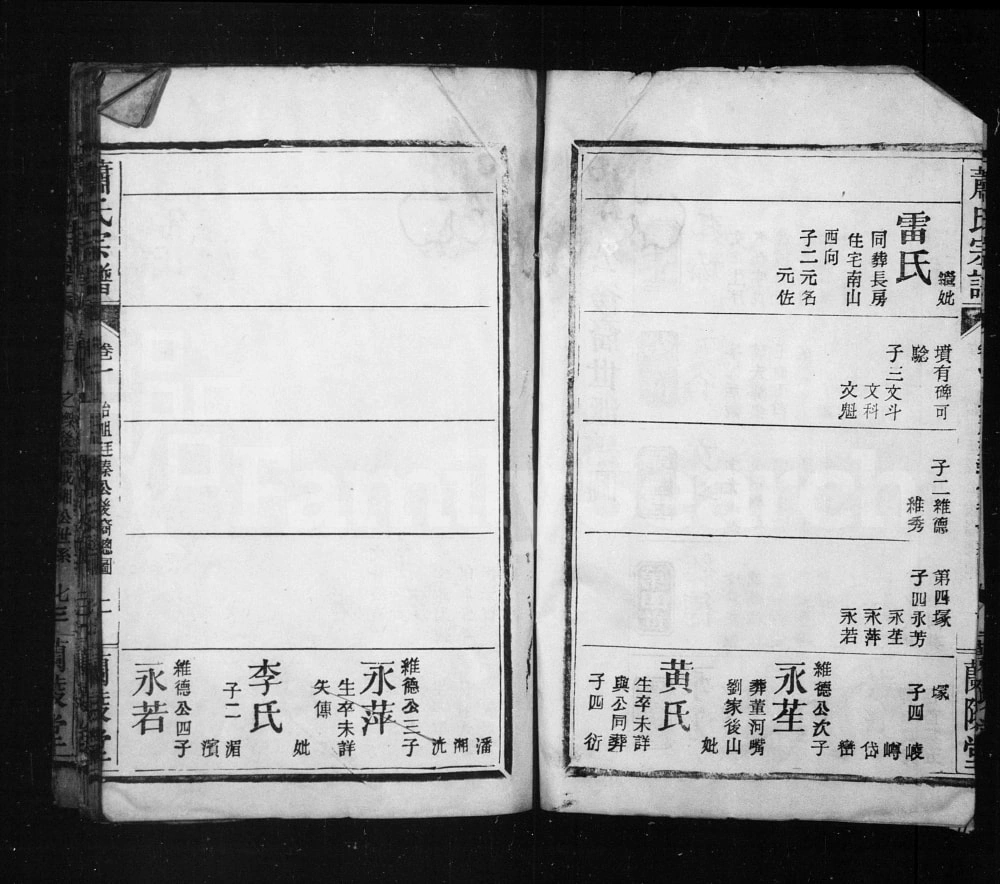 蕭氏宗譜
繼妣
雷氏
同葬長房
住宅南山
西向
子二元名
元佐
墳有碑可
騐
子三文斗
文科
文魁
子二維德
維秀
第四塚
子四永芳
永苼
永萍
永若
塚
子四
㟽
岱
巒
維德公次子
永苼
葬董河嘴
劉家後山
妣
黄氏
生卒未詳
與公同葬
子四
衍
潘
湘
洸
維德公三子
永萍
生卒未詳
失傳
妣
李氏
子二
湄
濱
維德公四子
永若
蘭陵堂
蕭氏宗譜
卷一
公後裔總圖
二
蘭陵堂